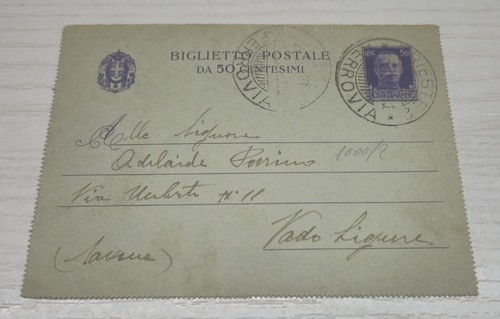 BIGLIETTO POSTALE
DA 50 CENTESIMI
FERROVIA
FERROVIA
50
Alla Signora
Adelaide
1000/2
Via Umberto N° 11
Vado Ligure
(Savona)